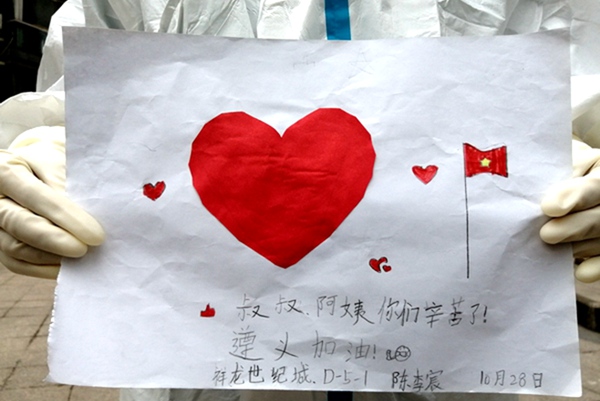 叔叔、阿姨你们辛苦了!
遵义加油!
祥龙世纪城.D-5-1 陈李宸 10月28日